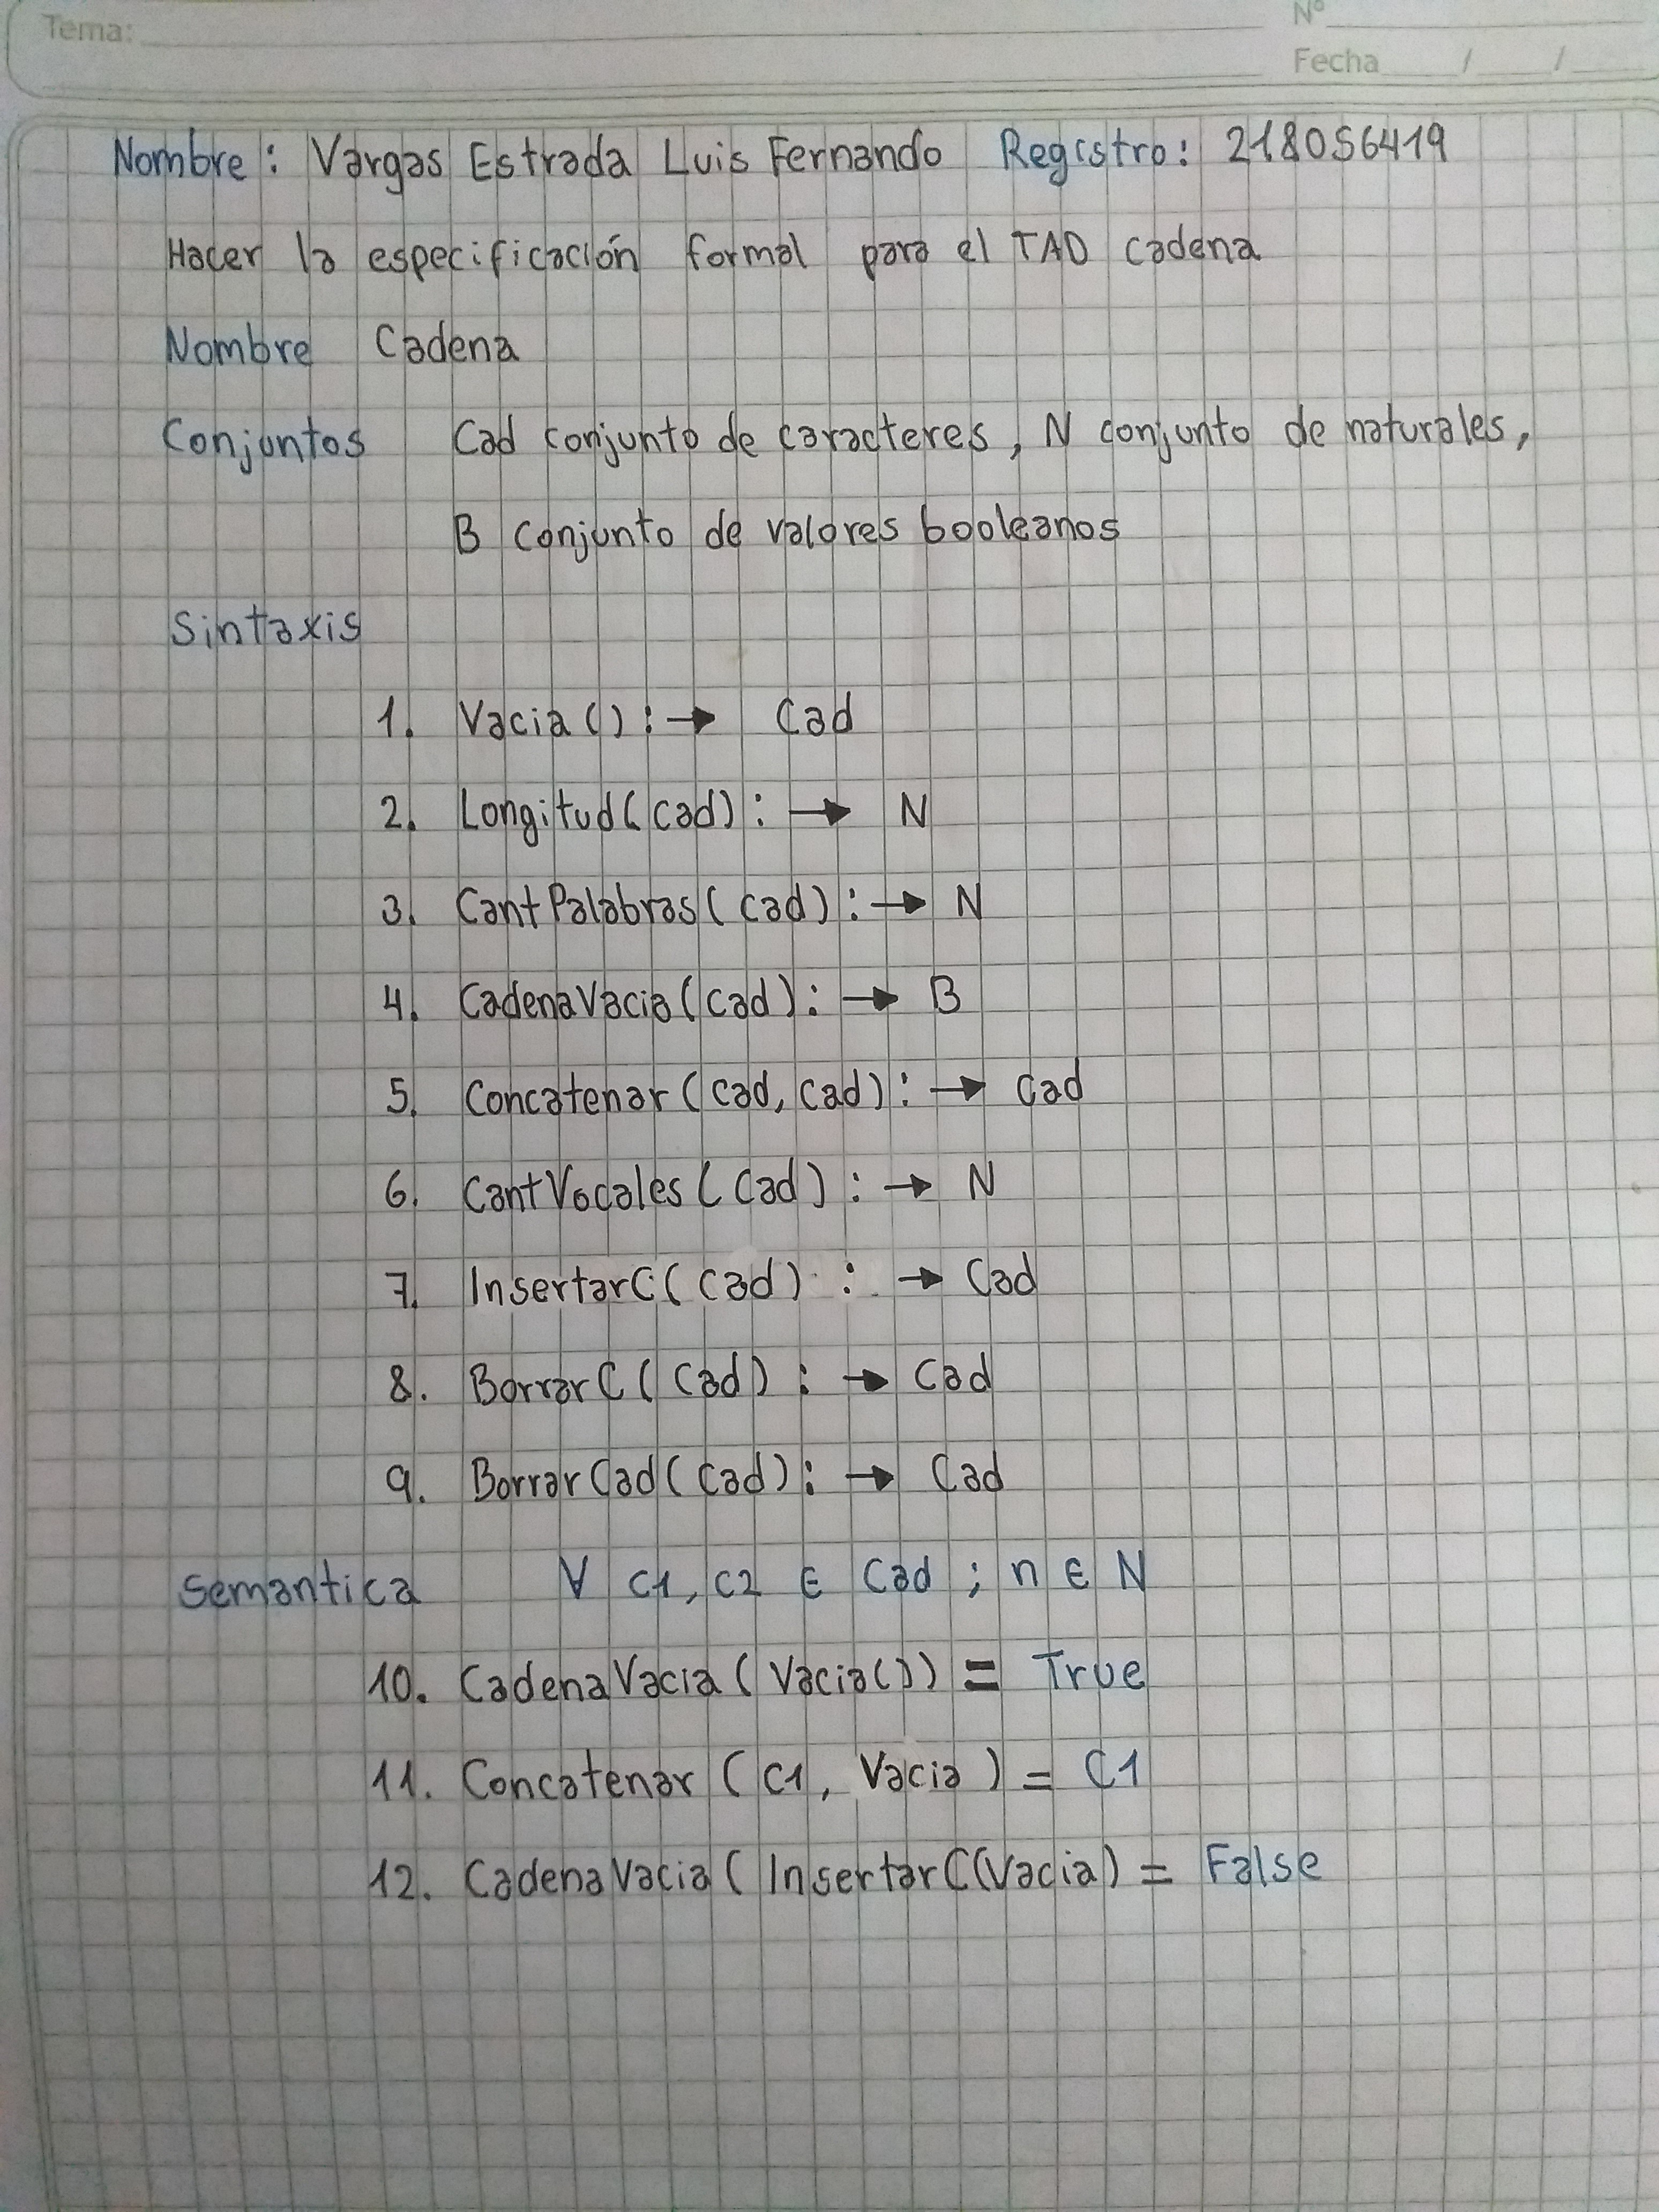 Tema:
Nº
Fecha / /
Nombre: Vargas Estrada Luis Fernando Registro: 218056419
Hacer la especificación formal para el TAD cadena
Nombre Cadena
Conjuntos Cad conjunto de caracteres, N conjunto de naturales,
B conjunto de valores booleanos
Sintaxis
1. Vacia():→ Cad
2. Longitud(Cad): → N
3. CantPalabras(Cad):→ N
4. CadenaVacia(Cad): → B
5. Concatenar(Cad, Cad): → Cad
6. CantVocales(Cad) : → N
7. InsertarC(Cad) : → Cad
8. BorrarC(Cad) : → Cad
9. BorrarCad(Cad): → Cad
Semantica ∀ C1, C2 ∈ Cad ; n ∈ N
10. CadenaVacia(Vacia()) = True
11. Concatenar (C1, Vacia) = C1
12. CadenaVacia(InsertarC(Vacia) = False